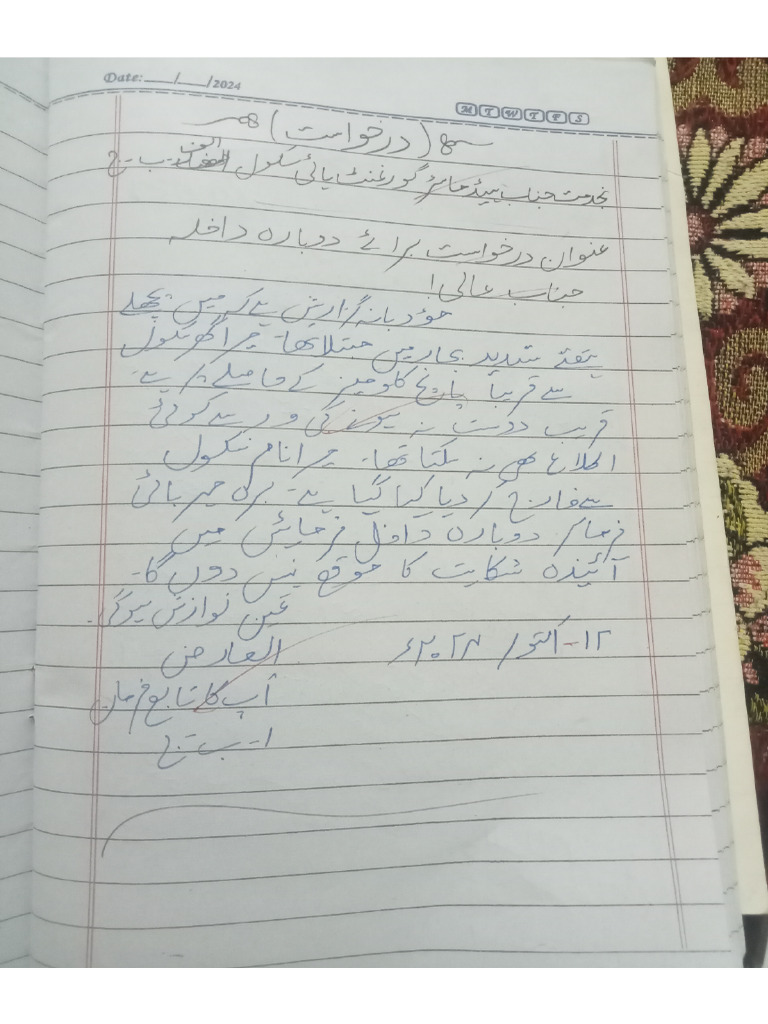 Date: ___/___/2024
M T W T F S
(درخواست)
بخدمت جناب ہیڈ ماسٹر گورنمنٹ ہائی سکول الف۔ب۔ج
عنوان درخواست برائے دوبارہ داخلہ
جناب عالی!
مؤدبانہ گزارش ہے کہ میں پچھلے
ہفتے شدید بخار میں مبتلا تھا۔ میرا گھر سکول
سے قریباً پانچ کلومیٹر کے فاصلے پر ہے۔
قریب دوست نہ ہونے کی وجہ سے کوئی
اطلاع بھی نہ سکتا تھا۔ میرا نام سکول
سے خارج کر دیا گیا ہے۔ برائے مہربانی
فرما کر دوبارہ داخل فرمائیں میں
آئیندہ شکایت کا موقع نہیں دوں گا۔
عین نوازش ہوگی۔
۱۲-اکتوبر ۲۰۲۴ء العارض
آپ کا تابع فرمان
ا-ب-ج